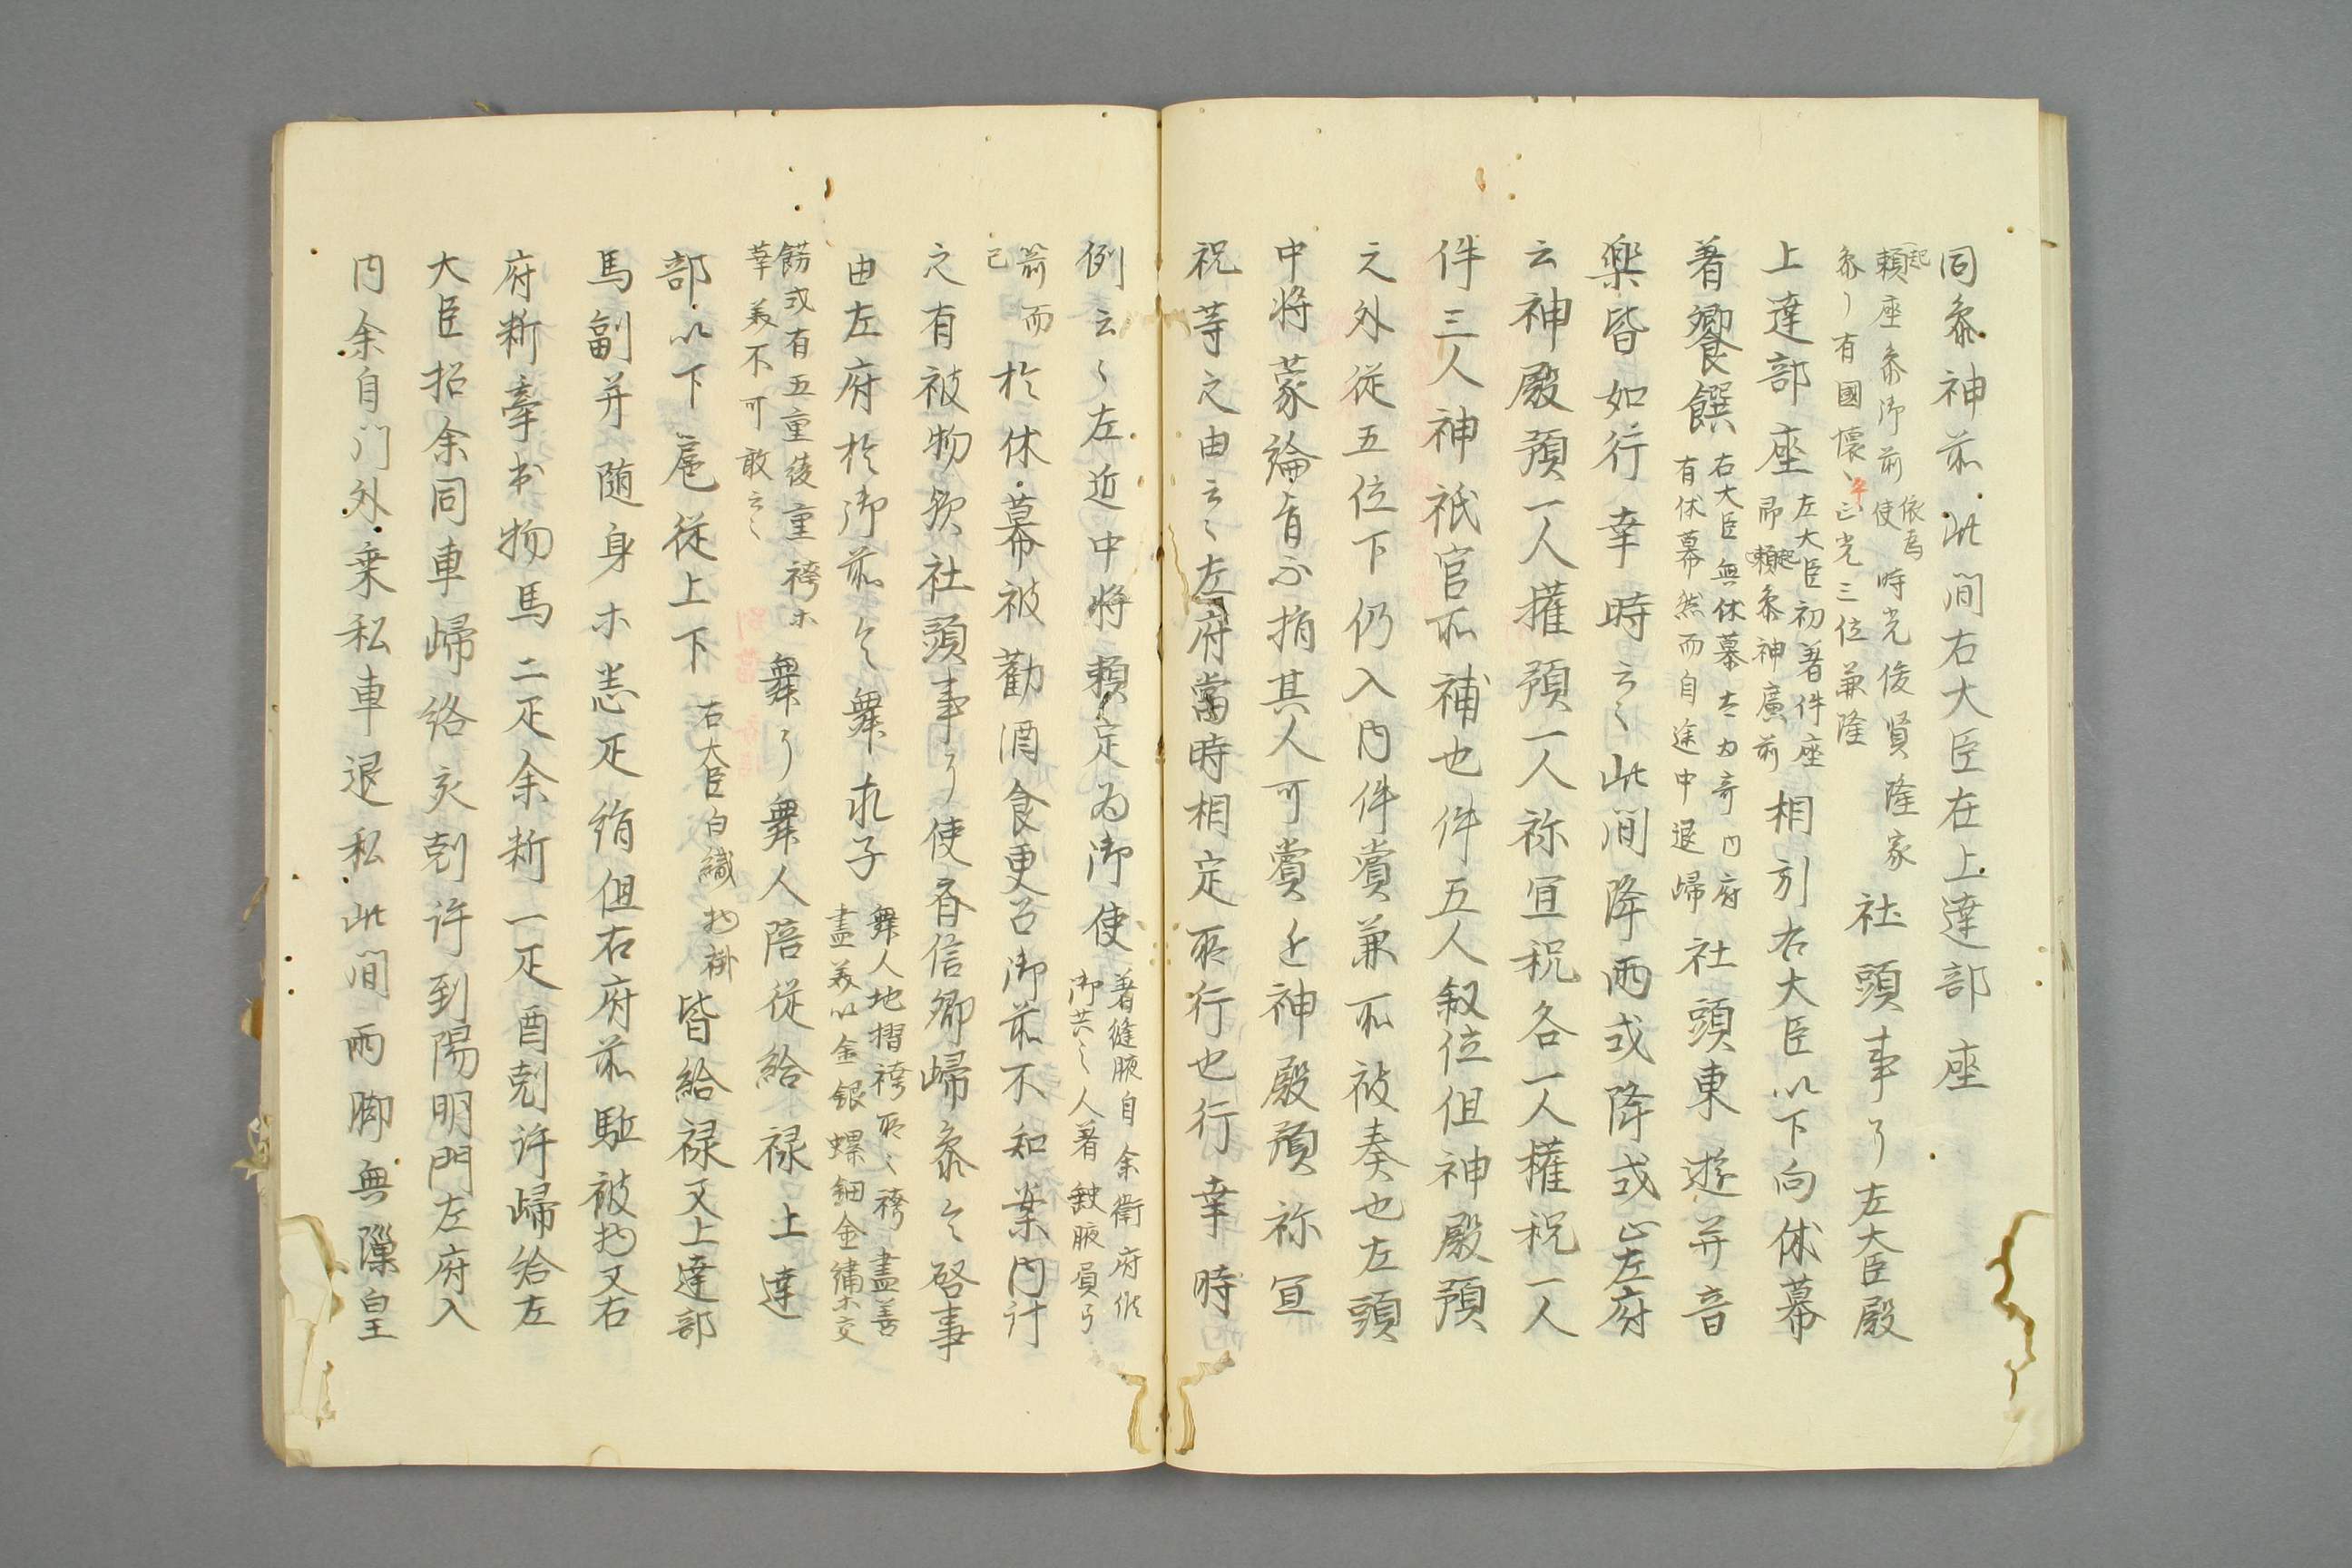 同参神前此間右大臣在上達部座
起頼座参御前
依為使時光俊賢隆家
参〻有國懐〻平正光三位兼隆
社頭事了左大臣殿
上達部座
左大臣初着件座
即起頼参神廣前
相引右大臣以下向休幕
着饗饌
右大臣無休幕太为奇内府
有休幕然而自途中退歸
社頭東遊并音
樂皆如行幸時云〻此間降雨或降或止左府
云神殿預一人權預一人祢宜祝各一人權祝一人
件三人神祇官所補也件五人叙位但神殿預
之外従五位下仍入内件賞兼所被奏也左頭
中将蒙綸旨示指其人可賞之神殿預祢宜
祝等之由云〻左府當時相定所行也行幸時
例云〻左近中将頼定為御使
着縫腋自余衛府依
御共之人着缺腋員了
箭而
已
於休幕被勸酒食更召御前不知案内計
之有被物欤社頭事了使斉信卿歸参令啓事
由左府於御前令舞求子
舞人地摺袴所〻袴盡善
盡美以金銀螺鈿金繍ホ交
餝或有五重綾重袴ホ
華美不可敢云〻
舞了舞人陪従給禄上達
部以下扈従上下
右大臣白織物褂
皆給禄又上達部
馬副并随身ホ恙疋絹但右府前駈被物又右
府新牽出物馬二疋余新一疋酉剋許歸給左
大臣招余同車歸給亥剋許到陽明門左府入
内余自門外乗私車退私此間雨脚無隟皇